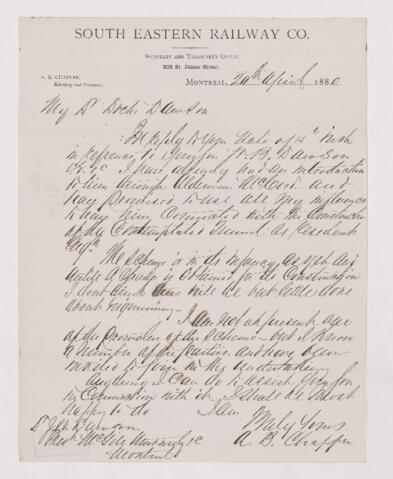 SOUTH EASTERN RAILWAY CO.
SECRETARY AND TREASURER'S OFFICE,
202 St. James Street.
A. B. CHAFFEE,
Secretary and Treasurer.
MONTREAL, 20th April 1880
My Dr Doctr Dawson
In reply to your Note of inst
in reference to your son W. B. Dawson
I have already had an introduction
to him through Alderman McCord and
have promised to use all my influence
to have him connected with the Construction
of the Contemplated Tunnel as Resident
Engr.
The Scheme is in its infancy as yet and
until a Charter is obtained for its Construction
I dont think there will be but little done
about Engineering.
I am not at present one
of the Promoters of the Scheme but I know
a number of the parties and have been
invited to join in the undertaking
Anything I can do to assist your son
in connection with it I shall be most
happy to do I am
Truly Yours
A. B. Chaffee
Dr J. W. Dawson
McGill University &c
Montreal